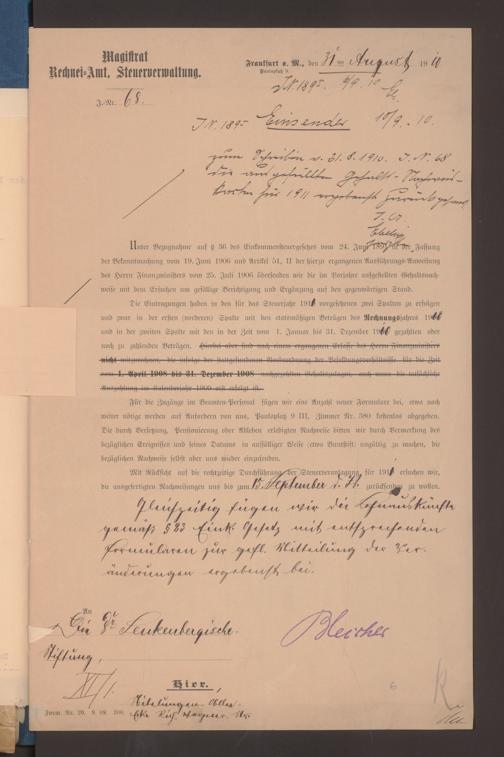 Magistrat
Rechnei-Amt, Steuerverwaltung.
J.-Nr. 68.
Frankfurt a. M., den 31ten August 1910
Paulsplatz 9.
J.N. 1895 4/9. 10
J.N. 1895 Einsender 10/9. 10.
zum Schreiben v. 31.8.1910. J.N. 68
die ausgefüllten Gehalts-Nachweis-
karten für 1911 ergebenst zurück
Unter Bezugnahme auf § 36 des Einkommensteuergesetzes vom 24. Juni der Fassung
der Bekanntmachung vom 19. Juni 1906 und Artikel 51, II der hierzu ergangenen Ausführungs-Anweisung
des Herrn Finanzministers vom 25. Juli 1906 übersenden wir die im Vorjahre aufgestellten Gehaltsnach-
weise mit dem Ersuchen um gefällige Berichtigung und Ergänzung auf den gegenwärtigen Stand.
Die Eintragungen haben in den für das Steuerjahr 1911 vorgesehenen zwei Spalten zu erfolgen
und zwar in der ersten (vorderen) Spalte mit den etatsmäßigen Beträgen des Rechnungsjahres 1910
und in der zweiten Spalte mit den in der Zeit vom 1. Januar bis 31. Dezember 1910 gezahlten oder
noch zu zahlenden Beträgen. Hierbei aber sind nach einem ergangenen Erlasse des Herrn Finanzministers
nicht mitzurechnen, die infolge der stattgefundenen der Besoldungsverhältnisse für die Zeit
vom 1. April 1908 bis 31. Dezember 1908 nachgezahlten Gehaltszulagen, auch wenn die tatsächliche
Auszahlung im Kalenderjahr 1909 erst erfolgt ist.
Für die Zugänge im Beamten-Personal fügen wir eine Anzahl neuer Formulare bei, etwa noch
weiter nötige werden auf Anfordern von uns, Paulsplatz 9 III, Zimmer Nr. 380 kostenlos abgegeben.
Die durch Versetzung, Pensionierung oder Ableben erledigten Nachweise bitten wir durch Vermerkung des
bezüglichen Ereignisses und seines Datums in auffälliger Weise (etwa Buntstift) ungültig zu machen, die
bezüglichen Nachweise selbst aber uns wieder einzusenden.
Mit Rücksicht auf die rechtzeitige Durchführung der Steuerveranlagung für 1911 ersuchen wir,
die ausgefertigten Nachweisungen uns bis zum 15. September d. Js. zurücksenden zu wollen.
Gleichzeitig fügen wir die Lohnauskünfte
gemäß § 23 Eink. Gesetz mit entsprechenden
Formularen zur gefl. Mitteilung der Ver-
änderungen ergebenst bei.
An
Die Dr. Senkenbergische
Stiftung,
Hier.
Bleicher
XI/1.
Form. Nr. 20. 8. 09. 200.
6